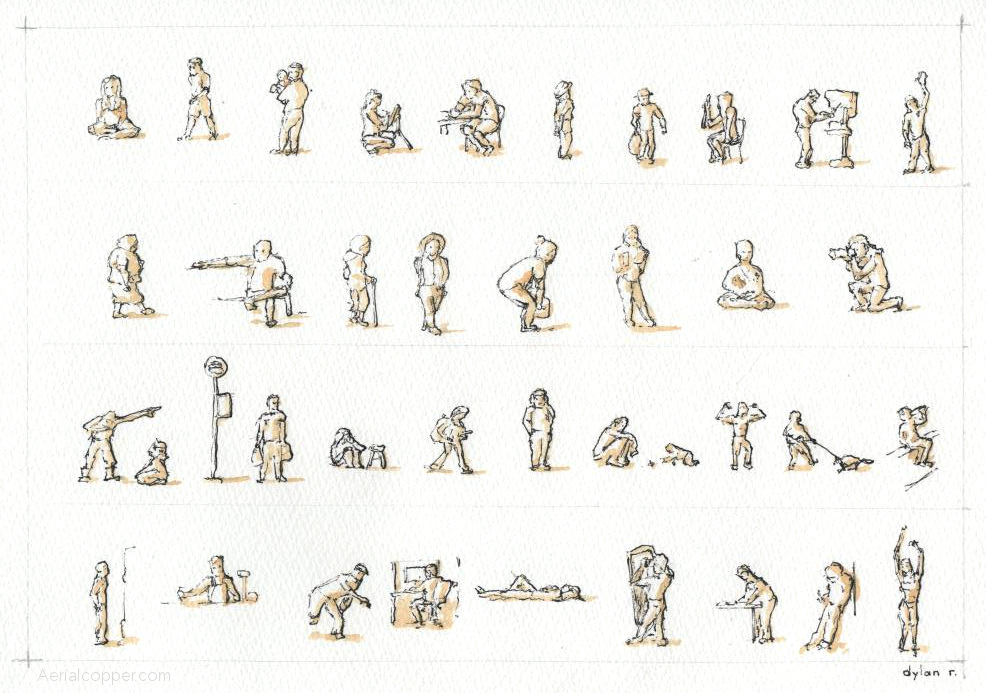 dylan r.
Aerialcopper.com